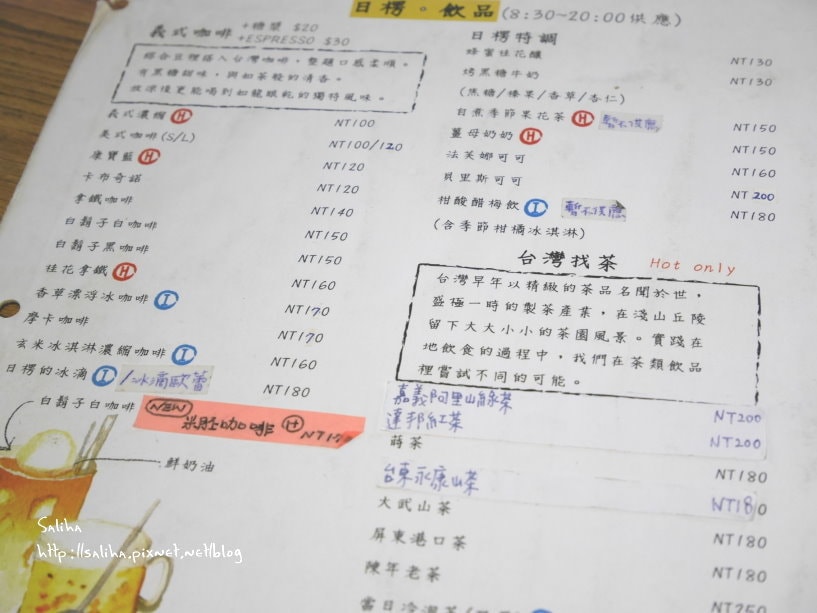 日楞。飲品(8:30~20:00供應)
義式咖啡 +糖漿 $20
+ESPRESSO $30
綜合豆裡揉入台灣咖啡，整體口感柔順。
有黑糖甜味，與如茶般的清香。
放涼後更能喝到如龍眼乾的獨特風味。
義式濃縮 H NT100
美式咖啡(S/L) NT100/120
康寶藍 H NT120
卡布奇諾 NT120
拿鐵咖啡 NT140
白鬍子白咖啡 NT150
白鬍子黑咖啡 NT150
桂花拿鐵 H NT160
香草漂浮冰咖啡 I NT170
摩卡咖啡 NT170
玄米冰淇淋濃縮咖啡 I NT160
日楞的冰滴 I /冰滴歐蕾 NT180
NEW 米胚咖啡 H NT1
白鬍子白咖啡
鮮奶油
日楞特調
蜂蜜桂花釀 NT130
烤黑糖牛奶 NT130
(焦糖/榛果/香草/杏仁)
自煮季節果花茶 H 暫不供應 NT150
薑母奶奶 H NT150
法芙娜可可 NT160
貝里斯可可 NT200
柑酸醋梅飲 I 暫不供應 NT180
(含季節柑橘冰淇淋)
台灣找茶 Hot only
台灣早年以精緻的茶品名聞於世，
盛極一時的製茶產業，在淺山丘陵
留下大大小小的茶園風景。實踐在
地飲食的過程中，我們在茶類飲品
裡嘗試不同的可能。
嘉義阿里山綠茶 NT200
達邦紅茶 NT200
蒔茶 NT180
台東永康山茶 NT180
大武山茶
屏東港口茶 NT180
陳年老茶 NT180
當日冷泡茶 NT250
Saliha
http://saliha.pixnet.net/blog